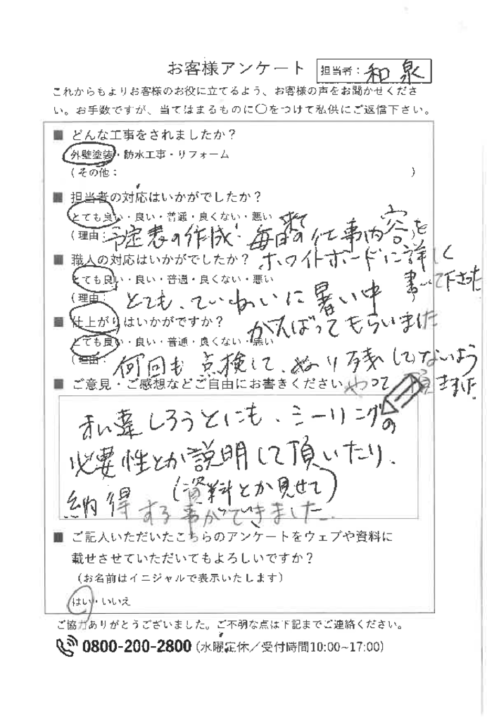 お客様アンケート 担当者: 和泉
これからもよりお客様のお役に立てるよう、お客様の声をお聞かせくださ
い。お手数ですが、当てはまるものに〇をつけて私供にご返信下さい。
■ どんな工事をされましたか?
外壁塗装・防水工事・リフォーム
(その他: )
■ 担当者の対応はいかがでしたか?
とても良い・良い・普通・良くない・悪い
(理由: 予定表の作成・毎日の仕事内容を
ホワイトボードに詳しく
書いて下さった
■ 職人の対応はいかがでしたか?
とても良い・良い・普通・良くない・悪い
(理由: とても、ていねいに暑い中
がんばってもらいました
■ 仕上がりはいかがですか?
とても良い・良い・普通・良くない・悪い
(理由: 何回も点検して、ぬり残してないよう
やって頂きました
■ ご意見・ご感想などご自由にお書きください
私達しろうとにも、シーリングの
必要性とか説明して頂いたり、
(資料とか見せて)
納得する事ができました
■ ご記入いただいたこちらのアンケートをウェブや資料に
載せさせていただいてもよろしいですか?
(お名前はイニシャルで表示いたします)
はい・いいえ
ご協力ありがとうございました。ご不明な点は下記までご連絡ください。
0800-200-2800 (水曜定休/受付時間10:00~17:00)